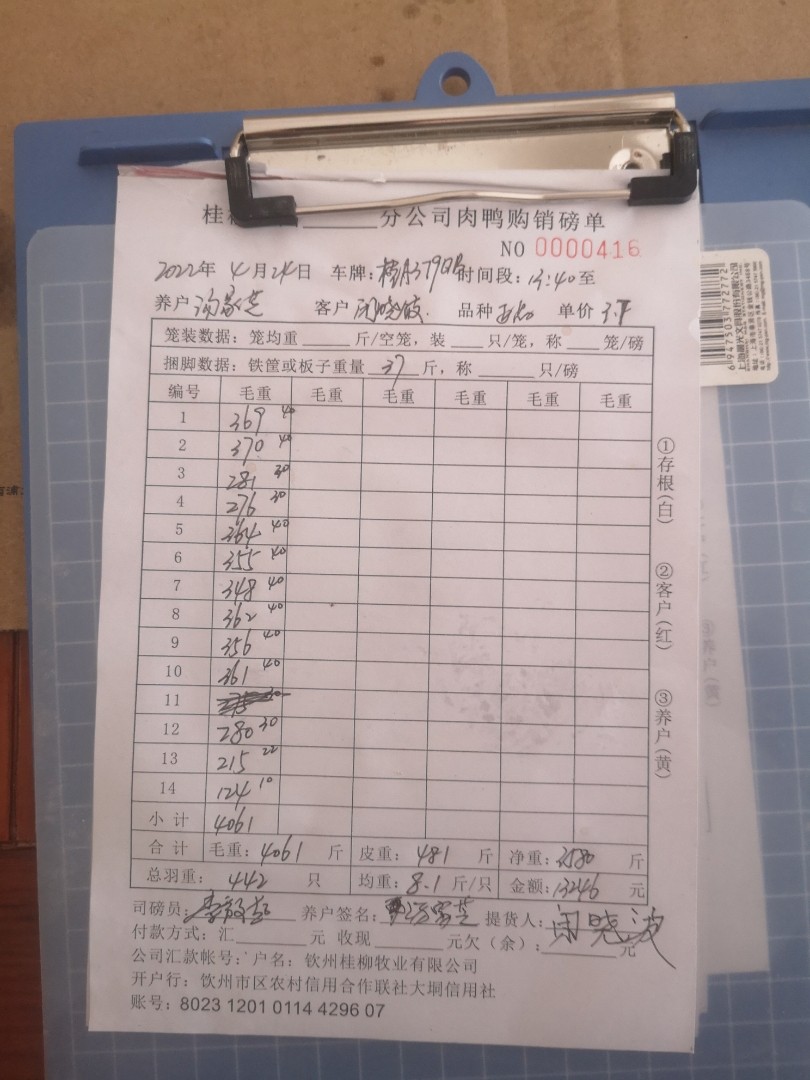 分公司肉鸭购销磅单
NO 0000416
2022年 4月24日 车牌: 时间段: 13:40至
养户 客户 闭晓波 品种 单价 3.7
笼装数据: 笼均重______斤/空笼, 装___只/笼, 称___笼/磅
捆脚数据: 铁筐或板子重量 37 斤, 称______只/磅
编号 毛重 毛重 毛重 毛重 毛重 毛重
1 369 40
2 370 40
3 281 30
4 276 30
5 364 40
6 355 40
7 348 40
8 362 40
9 356 40
10 361 40
11
12 280 30
13 215 22
14 124 10
小计 4061
合计 毛重: 4061 斤 皮重: 481 斤 净重: 3580 斤
总羽重: 442 只 均重: 8.1 斤/只 金额: 13246 元
司磅员: 养户签名: 提货人: 闭晓波
付款方式: 汇______元 收现______元欠(余):______元
公司汇款帐号: 户名: 钦州桂柳牧业有限公司
开户行: 钦州市区农村信用合作联社大垌信用社
账号: 8023 1201 0114 4296 07
①存根(白)
②客户(红)
③养户(黄)
6947503772772